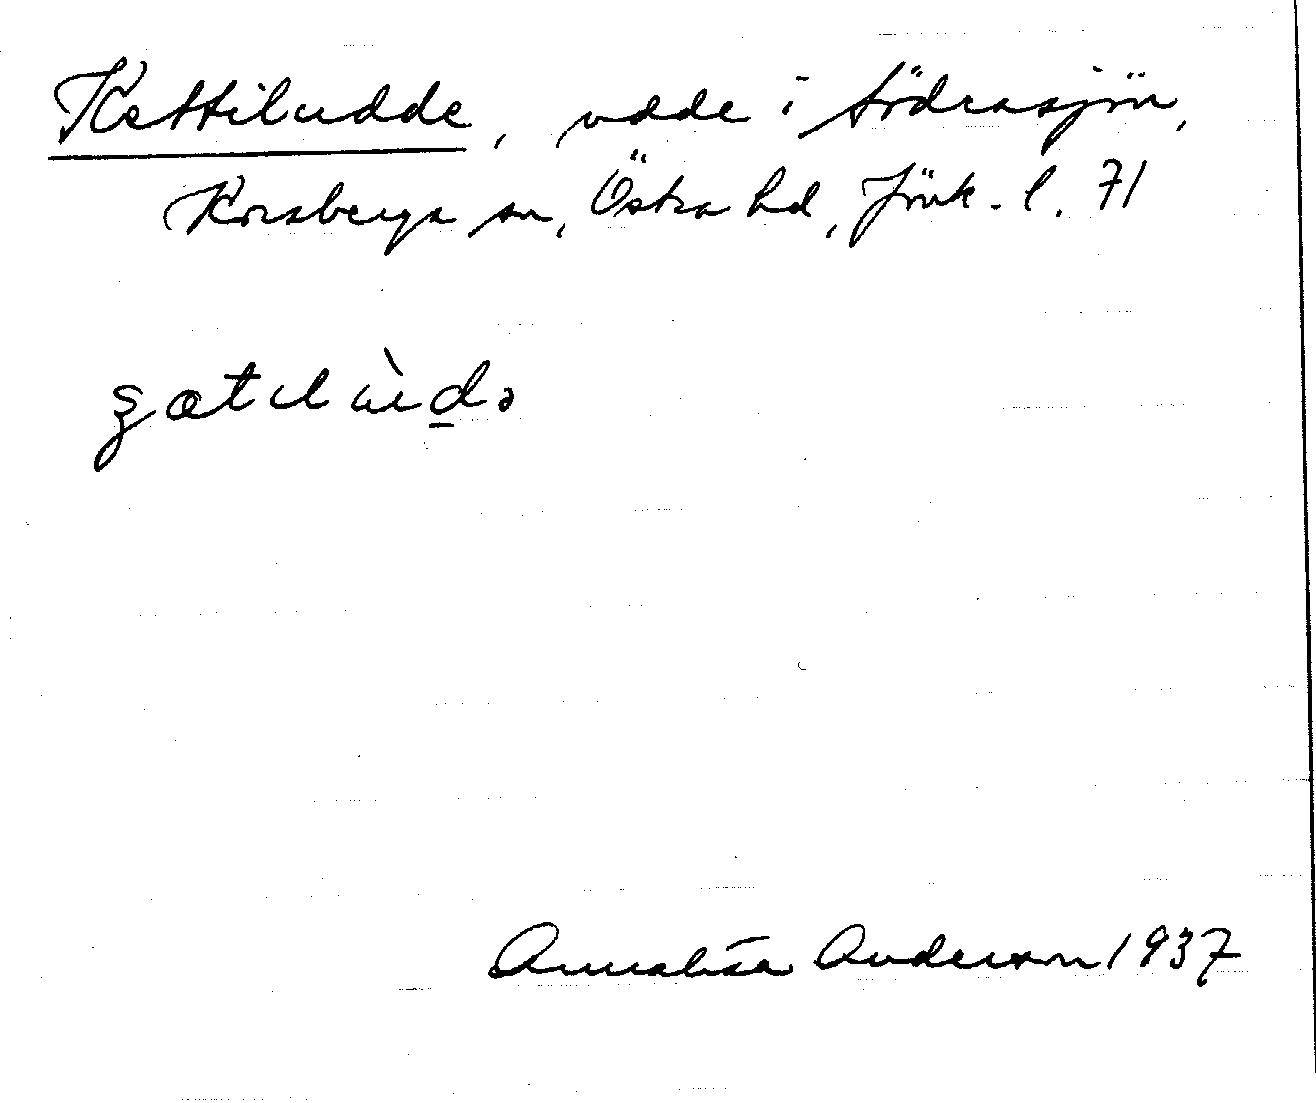 Kettiludde, udde i Södrasjön,
Korsberga sn, Östra hd, Jönk. l. 71
ʂætɪlɯ̀də
Annalisa Anderson 1937